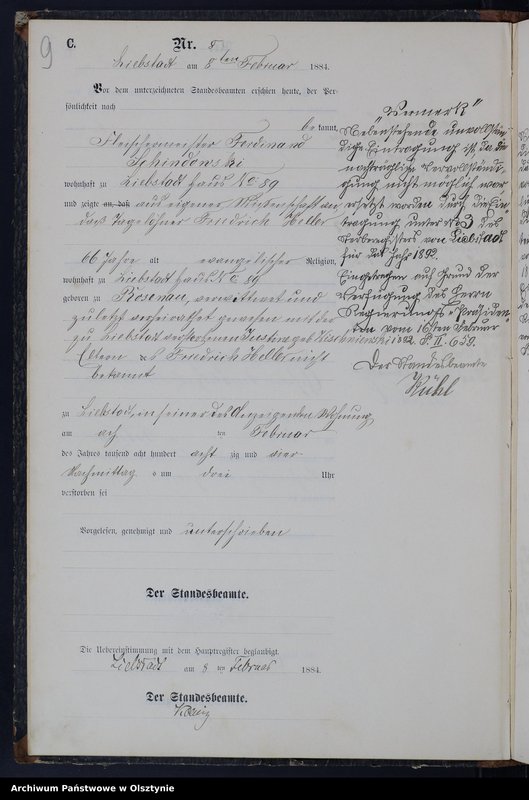 9
C.
Nr. 8
Liebstadt am 8ten Februar 1884.
Vor dem unterzeichneten Standesbeamten erschien heute, der Per-
sönlichkeit nach
be kannt,
Fleischermeister Ferdinand
Schindowski
wohnhaft zu Liebstadt Haus No 89
und zeigte an, daß aus eigener Wissenschaft an
daß Tagelöhner Friedrich Heller
66 Jahre alt evangelischer Religion,
wohnhaft zu Liebstadt Haus No 89
geboren zu Rosenau, verwittwet und
zuletzt verheirathet gewesen mit der
zu Liebstadt verstorbenen
Eltern des Friedrich Heller nicht
bekannt
zu Liebstadt, in seiner des Anzeigenden Wohnung
am acht ten Februar
des Jahres tausend acht hundert acht zig und vier
Nachmittag s um drei Uhr
verstorben sei
Vorgelesen, genehmigt und unterschrieben
Der Standesbeamte.
Die Uebereinstimmung mit dem Hauptregister beglaubigt.
Liebstadt am 8 ten Februar 1884.
Der Standesbeamte.
"Vermerk"
Nebenstehende unvollstän-
dige Eintragung ist, da die
nachträgliche Vervollständi-
gung nicht möglich war
ersetzt worden durch die Ein-
tragung unter No 3 des
Sterberegisters von Liebstadt
für das Jahr 1892.
Eingetragen auf Grund der
Verfügung des Herrn
Regierungs-Präsiden-
ten vom 16ten Februar
1892. P. II. 650.
Der Standesbeamte
Kühl
Archiwum Państwowe w Olsztynie